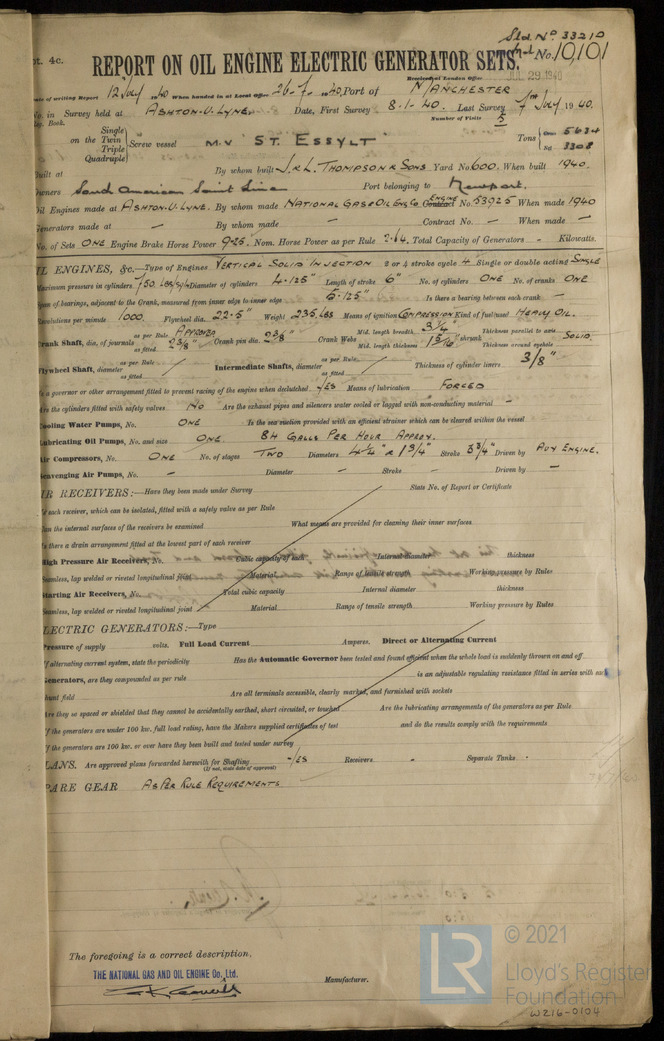 Sld No 33210
pt. 4c.
REPORT ON OIL ENGINE ELECTRIC GENERATOR SETS.
No. 10,101
Received at London Office JUL 29 1940
ate of writing Report 12 July 1940 When handed in at Local Office 26-7-1940 Port of MANCHESTER
No. in Survey held at ASHTON-U-LYNE. Date, First Survey 8-1-40. Last Survey 7th July 1940.
Reg. Book. Number of Visits 5
on the Single Twin Triple Quadruple Screw vessel M.V "ST. ESSYLT" Tons Gross 5634 3308
Built at By whom built J. & L. THOMPSON & SONS Yard No. 600. When built 1940.
Owners South American Saint Line Port belonging to Newport.
Oil Engines made at ASHTON-U-LYNE. By whom made NATIONAL GAS & OIL ENG. CO ENGINE Contract No. 53925 When made 1940
Generators made at — By whom made — Contract No. — When made —
No. of Sets ONE Engine Brake Horse Power 9.25. Nom. Horse Power as per Rule 2.64. Total Capacity of Generators - Kilowatts.
OIL ENGINES, &c.—Type of Engines VERTICAL SOLID INJECTION 2 or 4 stroke cycle 4 Single or double acting SINGLE
Maximum pressure in cylinders 750 LBS/SQ IN Diameter of cylinders 4.125" Length of stroke 6" No. of cylinders ONE No. of cranks ONE
Span of bearings, adjacent to the Crank, measured from inner edge to inner edge 6.125" Is there a bearing between each crank —
Revolutions per minute 1000. Flywheel dia. 22.5" Weight 235 LBS Means of ignition COMPRESSION Kind of fuel used HEAVY OIL.
Crank Shaft, dia. of journals as per Rule APPROVED as fitted 2 3/8" Crank pin dia. 2 3/8" Crank Webs Mid. length breadth 3 3/4" Mid. length thickness 1 5/16" shrunk Thickness parallel to axis Thickness around eyehole SOLID.
Flywheel Shaft, diameter as per Rule as fitted Intermediate Shafts, diameter as per Rule as fitted Thickness of cylinder liners 3/8"
Is a governor or other arrangement fitted to prevent racing of the engine when declutched YES Means of lubrication FORCED
Are the cylinders fitted with safety valves NO Are the exhaust pipes and silencers water cooled or lagged with non-conducting material -
Cooling Water Pumps, No. ONE Is the sea suction provided with an efficient strainer which can be cleared within the vessel
Lubricating Oil Pumps, No. and size ONE. 84 GALLS PER HOUR APPROX.
Air Compressors, No. ONE No. of stages TWO Diameters 4 1/4" & 1 3/4" Stroke 3 3/4" Driven by AUX ENGINE.
Scavenging Air Pumps, No. — Diameter — Stroke — Driven by —
AIR RECEIVERS:—Have they been made under Survey State No. of Report or Certificate
Is each receiver, which can be isolated, fitted with a safety valve as per Rule
Can the internal surfaces of the receivers be examined What means are provided for cleaning their inner surfaces
Is there a drain arrangement fitted at the lowest part of each receiver
High Pressure Air Receivers, No. Cubic capacity of each Internal diameter thickness
Seamless, lap welded or riveted longitudinal joint Material Range of tensile strength Working pressure by Rules
Starting Air Receivers, No. Total cubic capacity Internal diameter thickness
Seamless, lap welded or riveted longitudinal joint Material Range of tensile strength Working pressure by Rules
ELECTRIC GENERATORS:—Type
Pressure of supply volts. Full Load Current Amperes. Direct or Alternating Current
If alternating current system, state the periodicity Has the Automatic Governor been tested and found efficient when the whole load is suddenly thrown on and off
Generators, are they compounded as per rule is an adjustable regulating resistance fitted in series with each
shunt field Are all terminals accessible, clearly marked, and furnished with sockets
Are they so spaced or shielded that they cannot be accidentally earthed, short circuited, or touched Are the lubricating arrangements of the generators as per Rule
If the generators are under 100 kw. full load rating, have the Makers supplied certificates of test and do the results comply with the requirements
If the generators are 100 kw. or over have they been built and tested under survey
PLANS. Are approved plans forwarded herewith for Shafting YES Receivers - Separate Tanks -
(If not, state date of approval)
SPARE GEAR AS PER RULE REQUIREMENTS
The foregoing is a correct description.
THE NATIONAL GAS AND OIL ENGINE Co. Ltd.
Manufacturer.
© 2021
LR
Lloyd's Register
Foundation
W216-0104